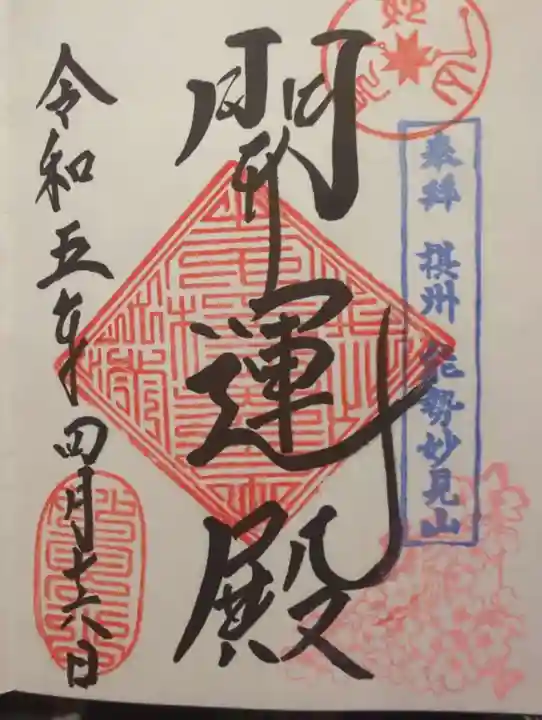 奉拝 摂州 能勢妙見山
開運殿
令和五年四月十六日